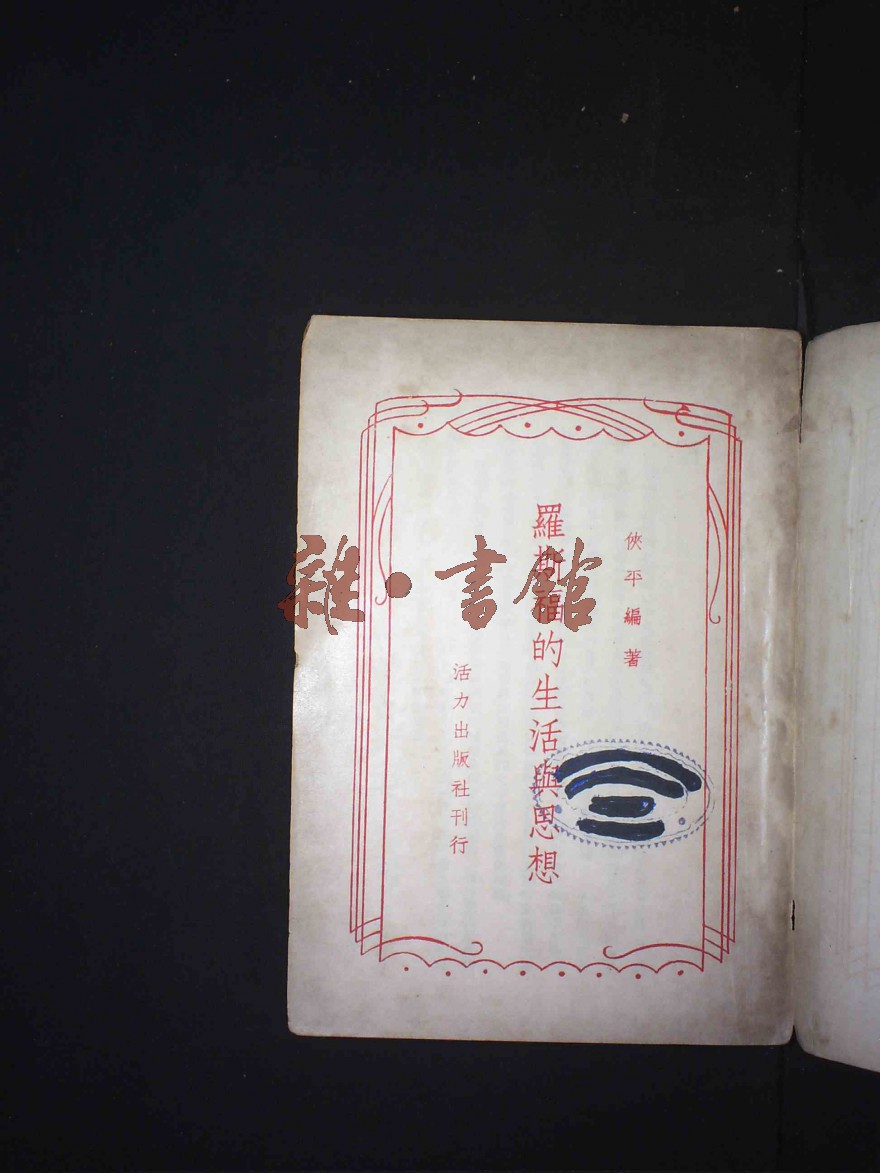 俠平編著
羅斯福的生活與思想
活力出版社刊行
雜·書館